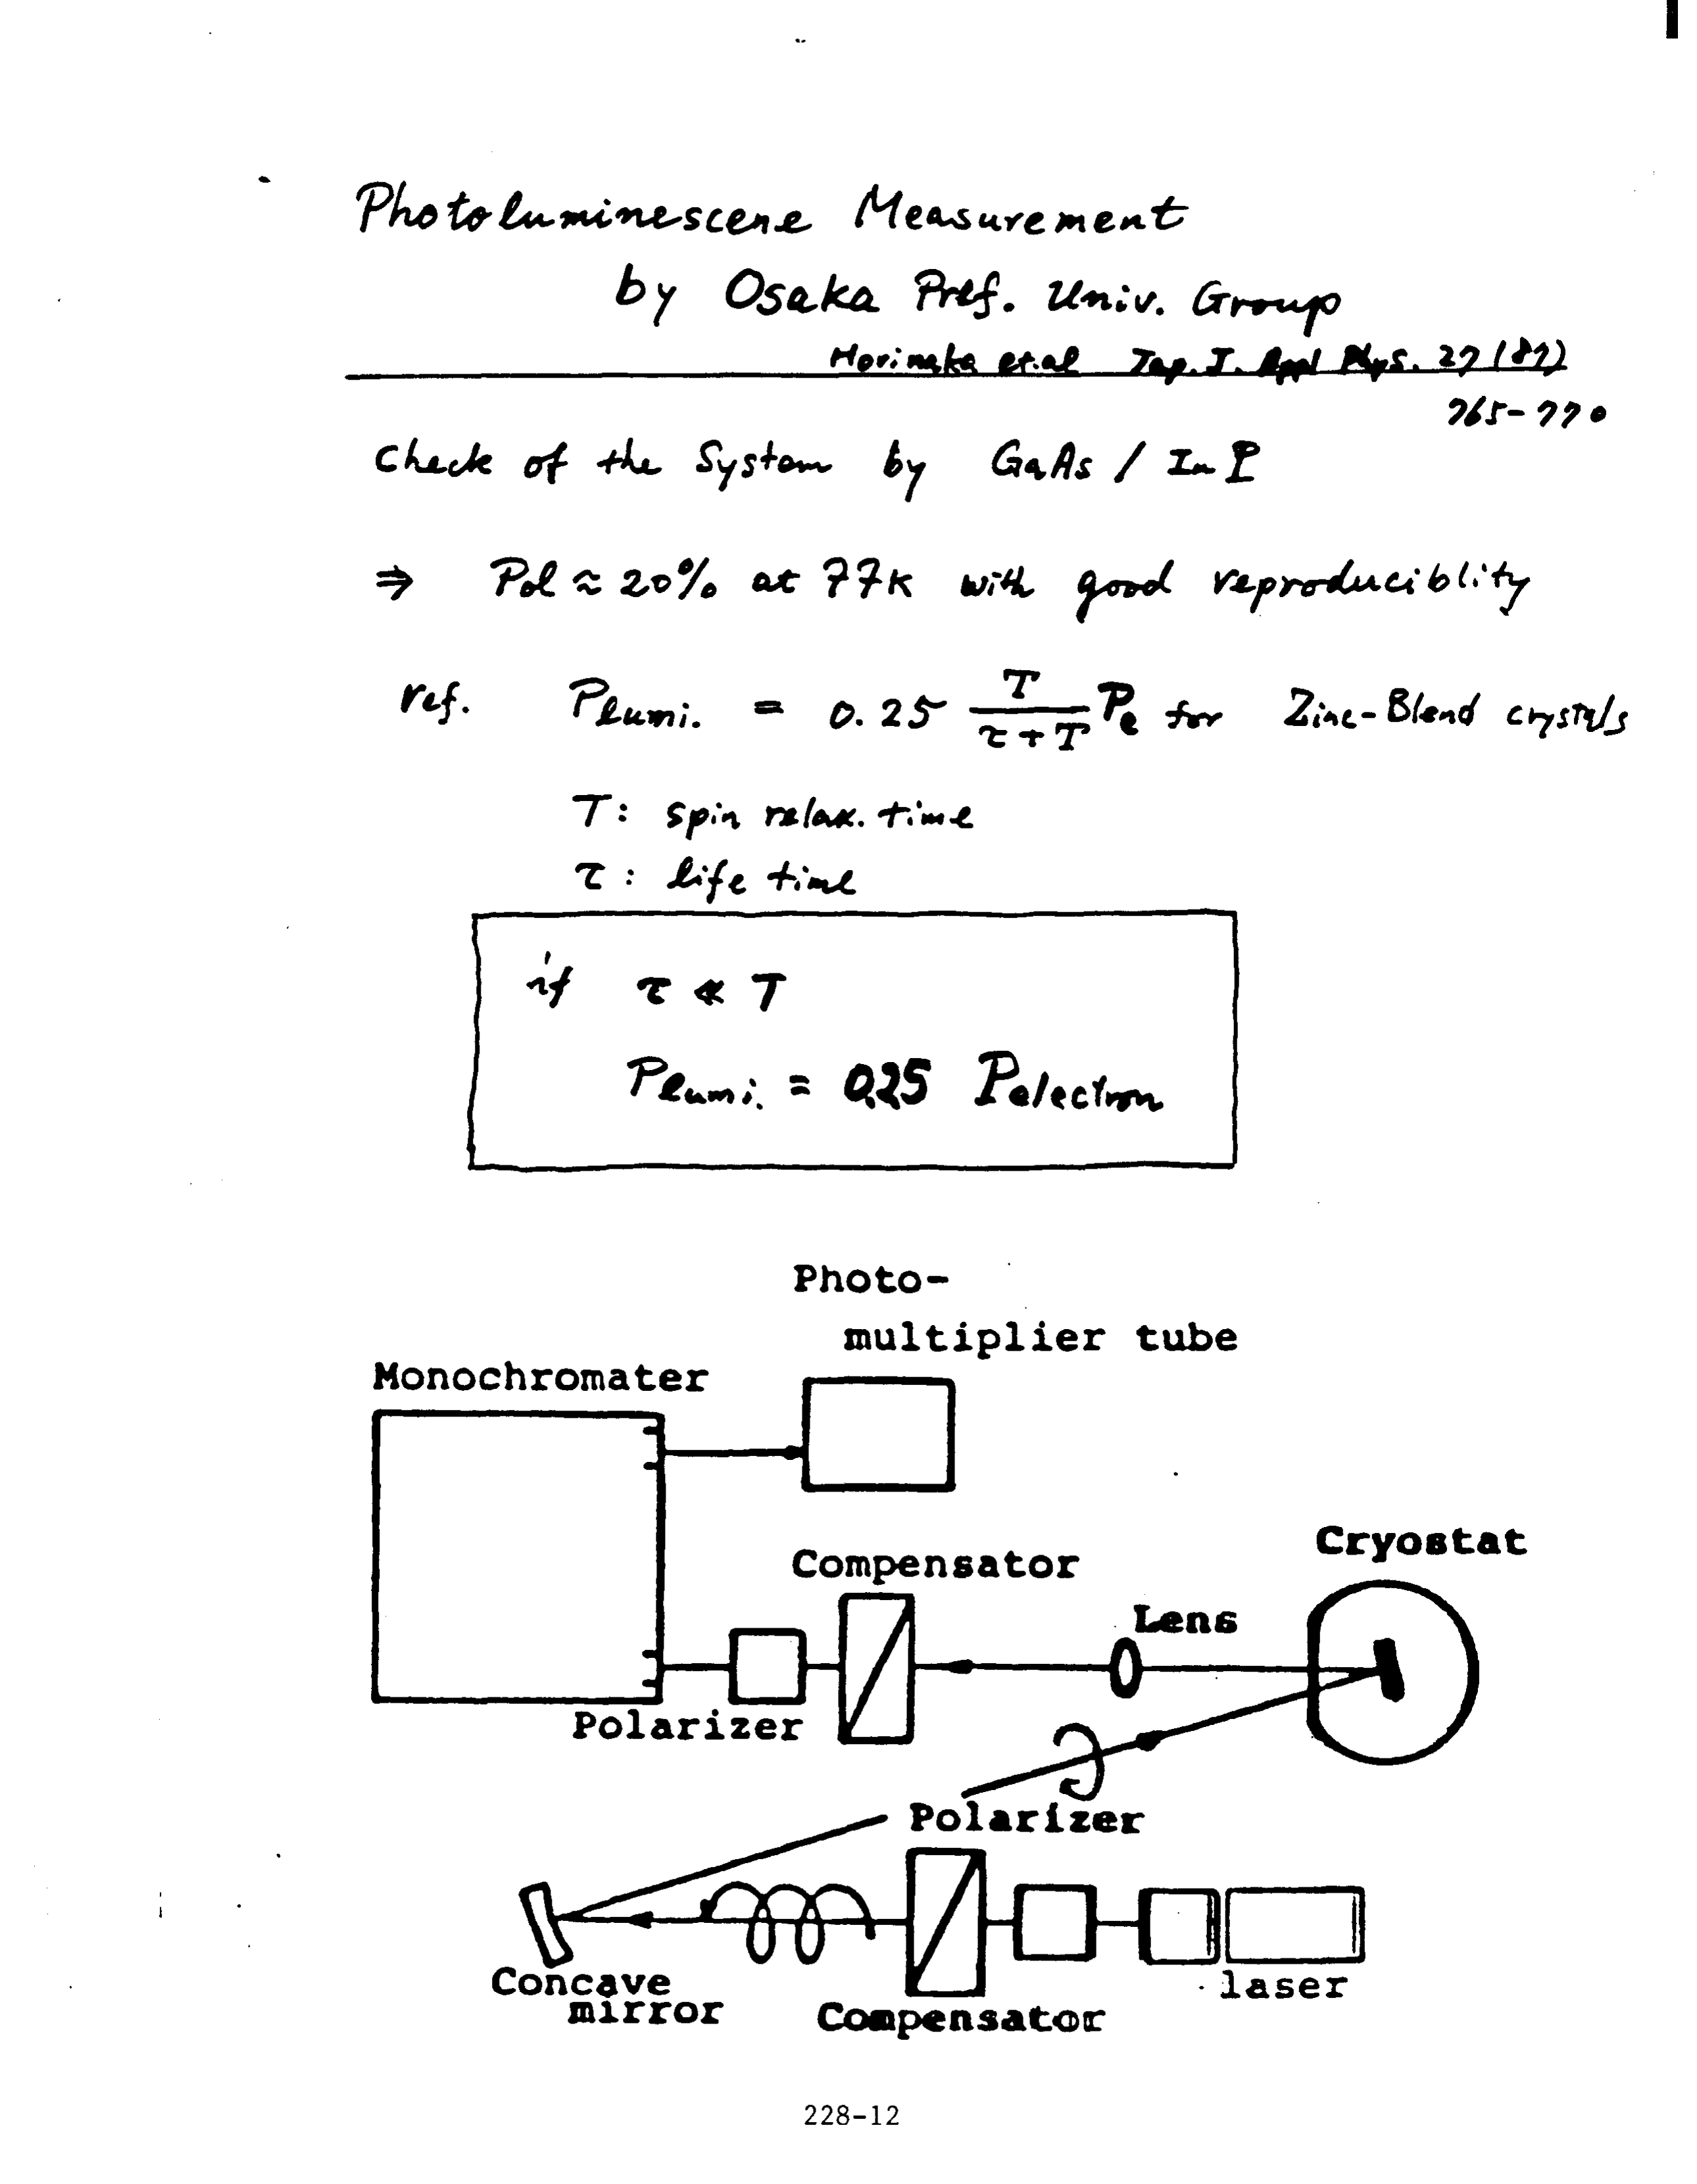 Photoluminescene Measurement
by Osaka Pref. Univ. Group
Horinaka et.al Jap. J. Appl Phys. 27 (87)
765-770
Check of the System by GaAs / InP
⇒ Pol ≈ 20% at 77K with good reproduciblity
ref. Plumi. = 0.25 T/(τ+T) Pe for Zinc-Blend crystals
T: spin relax. time
τ: life time
if τ ≪ T
Plumi. = 0.25 Pelectron
Photo-
multiplier tube
Monochromater
Cryostat
Compensator
Lens
Polarizer
Polarizer
Concave
mirror
laser
Compensator
228-12